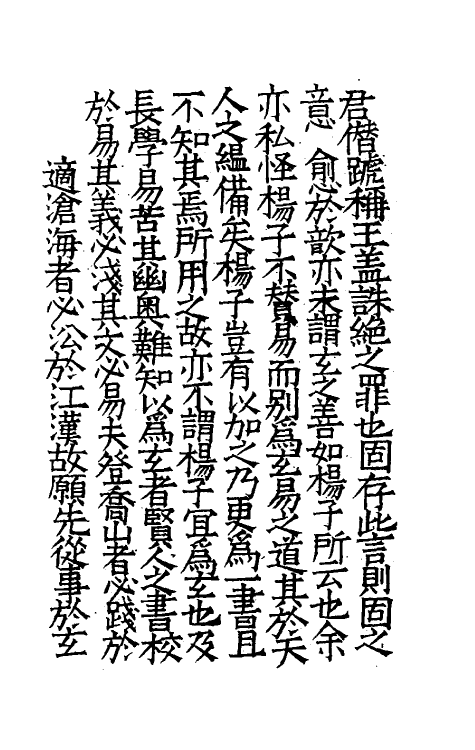 君僭號稱王盖誅絶之罪也固存此言則固之
意愈於歆亦未謂玄之善如楊子所云也余
亦私怪楊子不賛易而别爲玄易之道其於天
人之緼備矣楊子豈有以加之乃更爲一書且
不知其焉所用之故亦不謂楊子宜爲玄也及
長學易苦其幽奥難知以爲玄者賢人之書校
於易其義必淺其文必易夫登喬山者必踐於
適滄海者必㳂於江漢故願先從事於玄